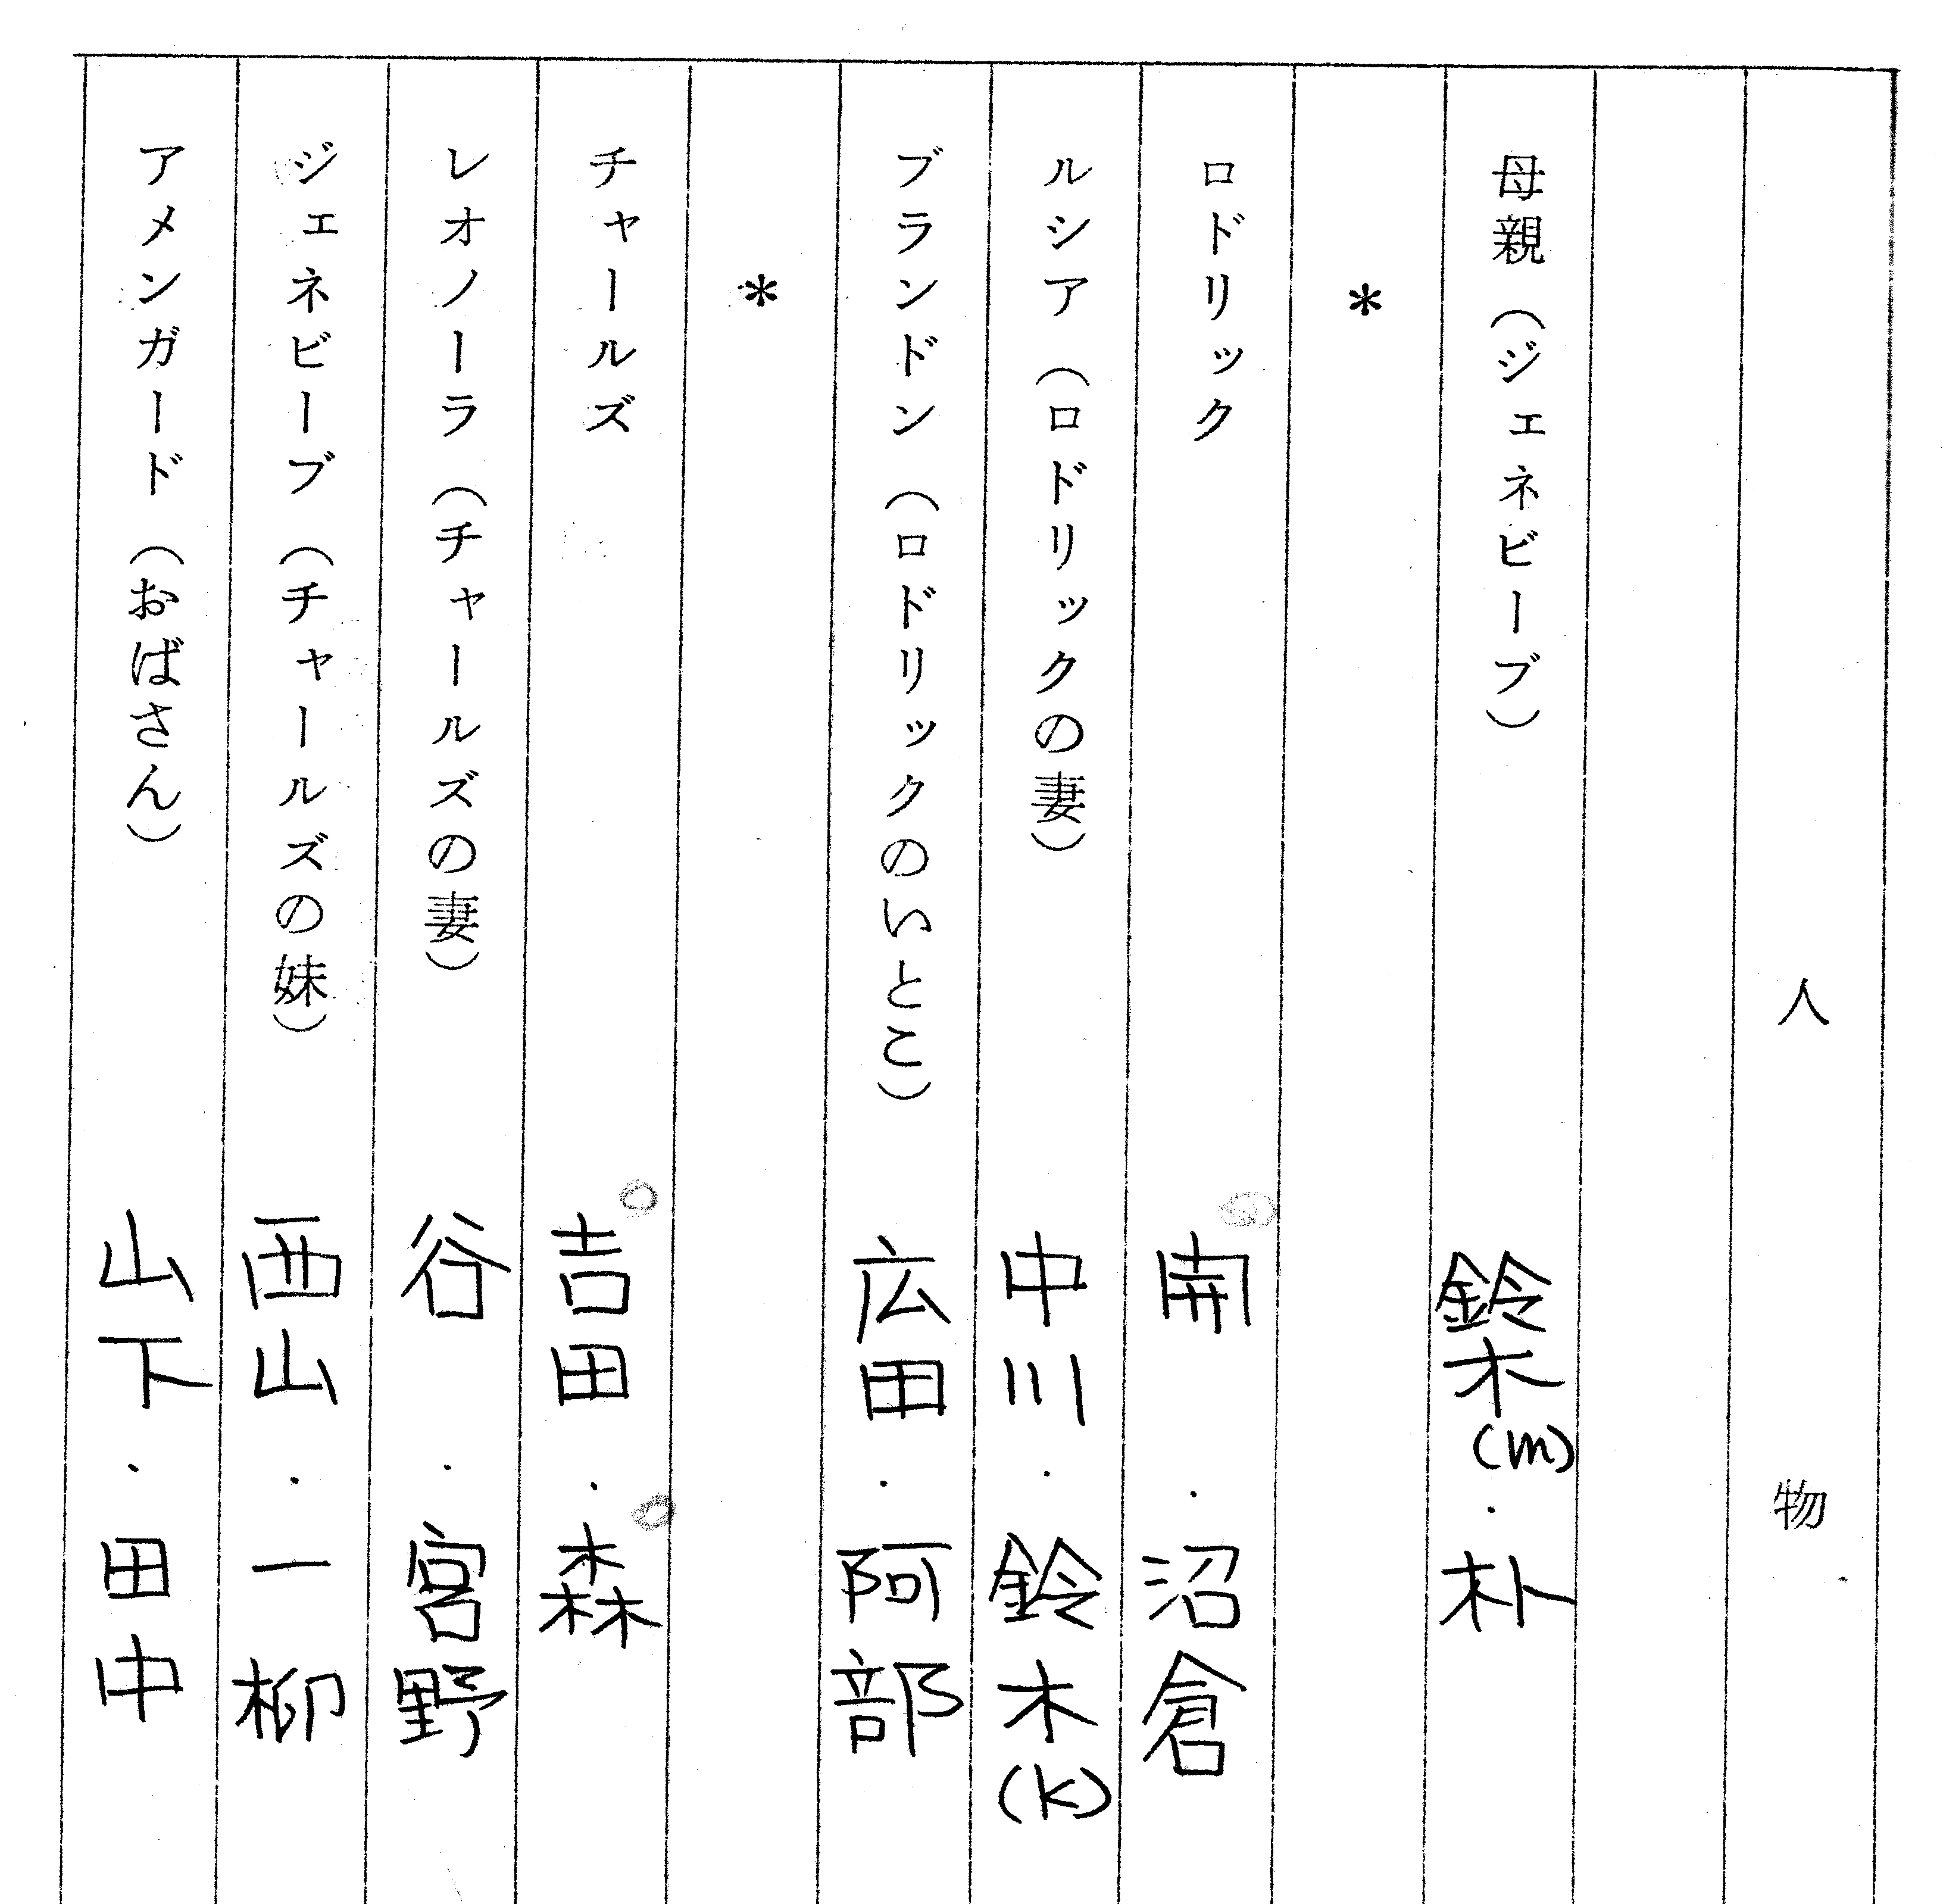 人物
母親（ジェネビーブ） 鈴木(m)・朴
＊
ロドリック 開・沼倉
ルシア（ロドリックの妻） 中川・鈴木(k)
ブランドン（ロドリックのいとこ） 広田・阿部
＊
チャールズ 吉田・森
レオノーラ（チャールズの妻） 谷・宮野
ジェネビーブ（チャールズの妹） 西山・一柳
アメンガード（おばさん） 山下・田中